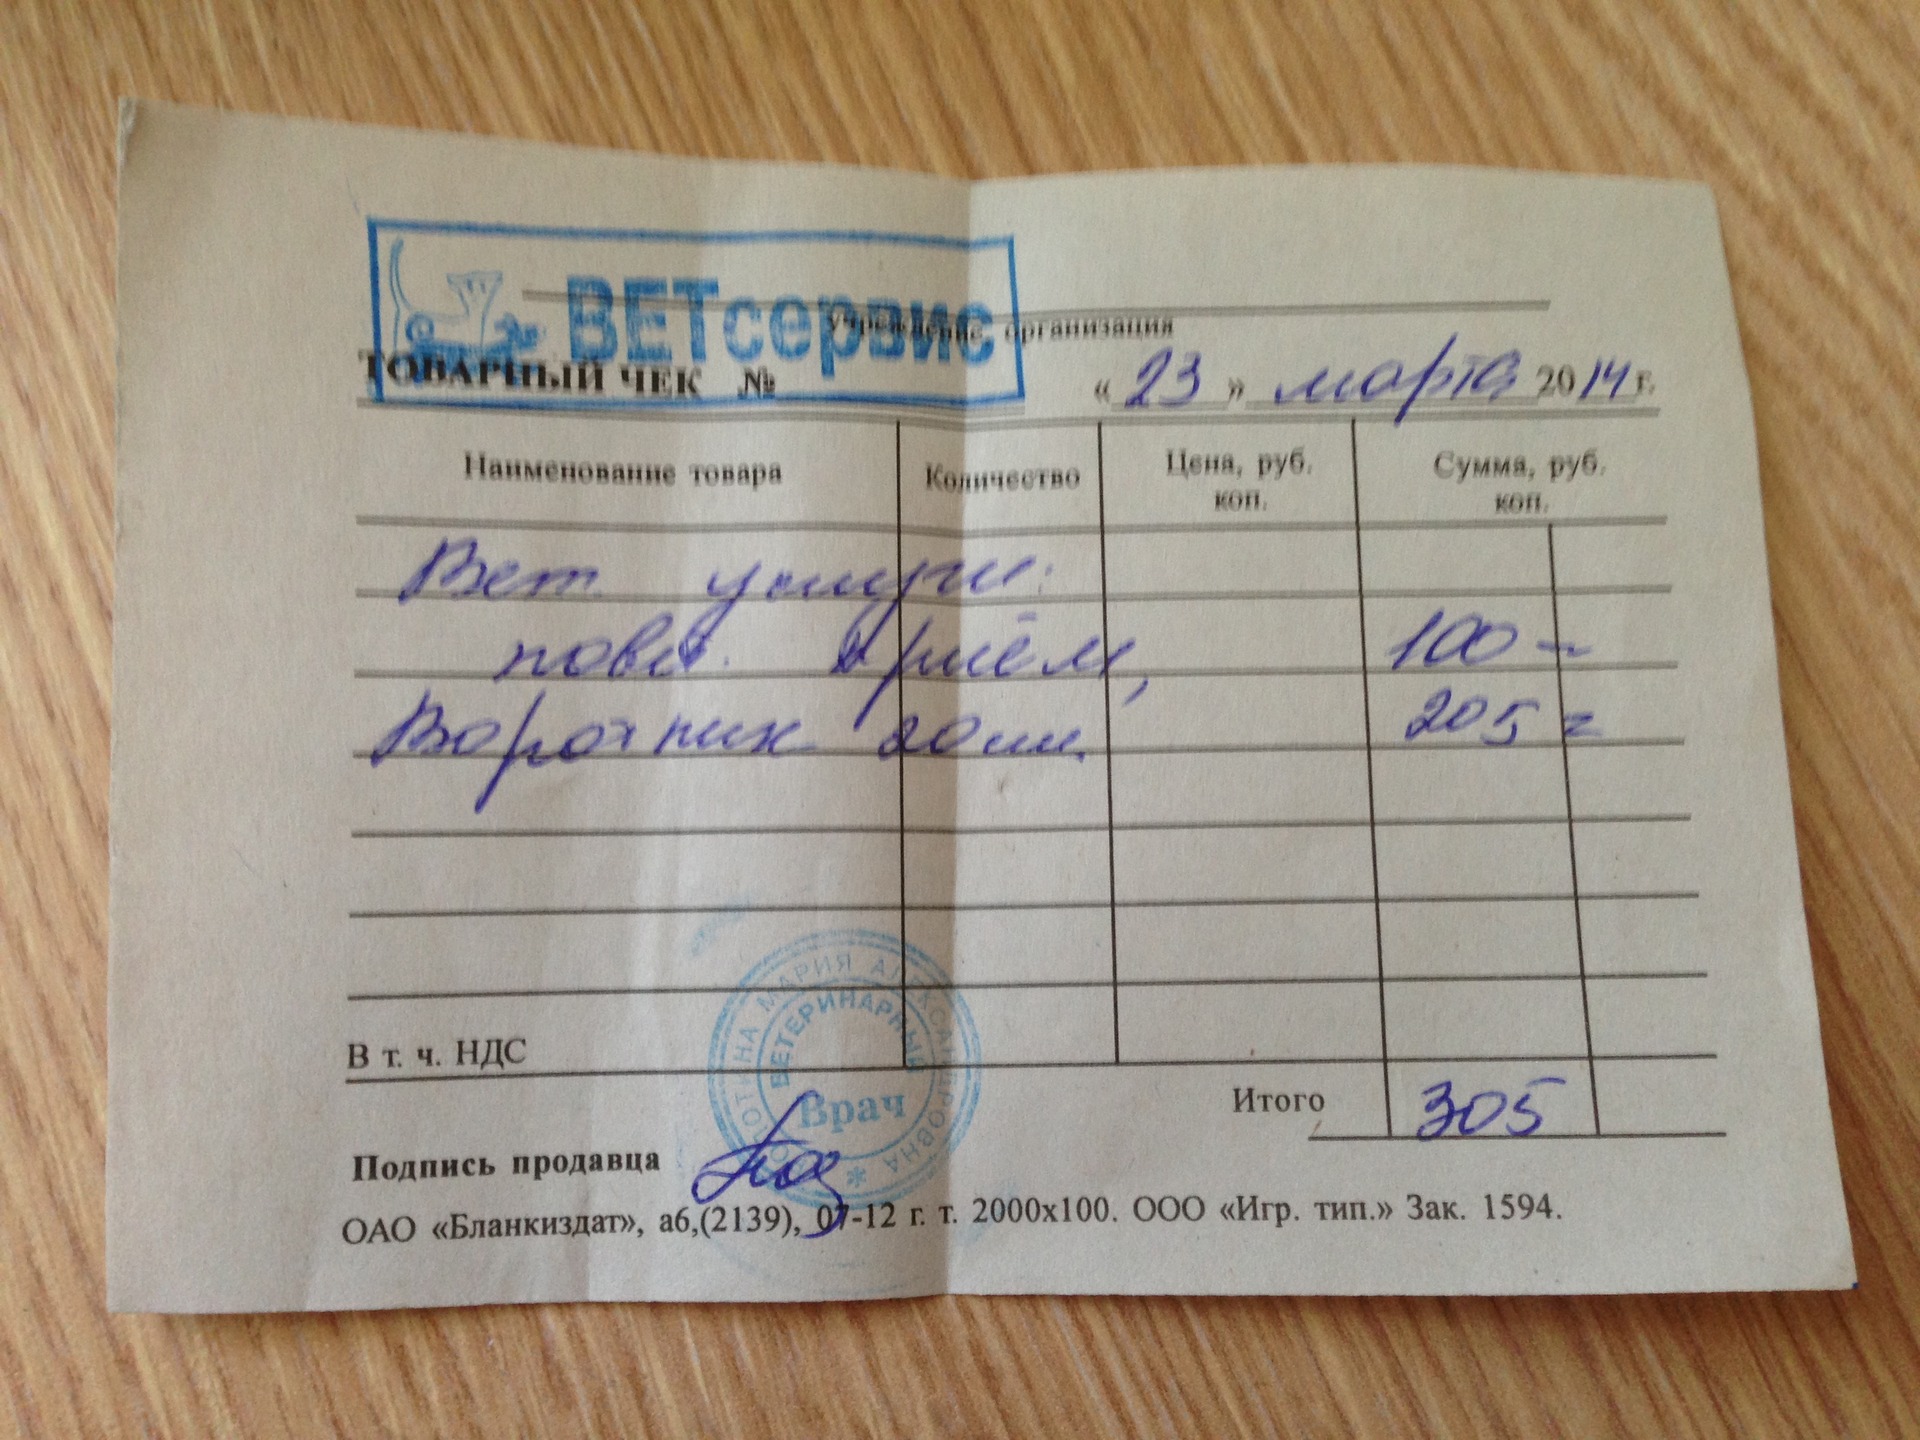 ВЕТсервис
учреждение, организация
ТОВАРНЫЙ ЧЕК № « 23 » марта 2014 г.
Наименование товара Количество Цена, руб. коп. Сумма, руб. коп.
Вет. услуги:
повт. приём, 100 -
Воротник 20 см. 205 =
В т. ч. НДС
Итого 305
МАРИЯ АЛЕКСАНДРОВНА
ВЕТЕРИНАРНЫЙ
Врач
Подпись продавца
ОАО «Бланкиздат», а6,(2139), 07-12 г. т. 2000х100. ООО «Игр. тип.» Зак. 1594.